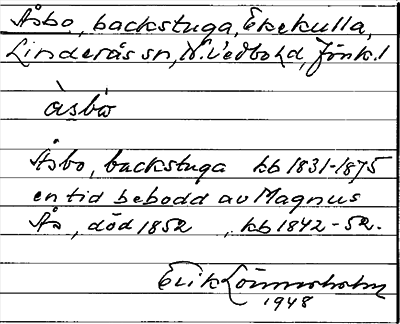 Åsbo, backstuga, Ekekulla,
Linderås sn, N. Vedbo hd, Jönk. l
åsbo
Åsbo, backstuga kb 1831-1875
en tid bebodd av Magnus
Ås, död 1852, kb 1842-52.
Erik Lönnerholm
1948